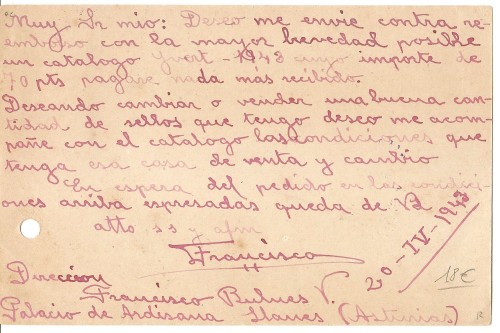 Muy Sr mio: Deseo me envie contra re-
embolso con la mayor brevedad posible
un catalogo Yvert-1943 cuyo importe de
70 pts pagaré nada más recibido.
Deseando cambiar o vender una buena can-
tidad de sellos que tengo deseo me acom-
pañe con el catalogo las condiciones que
tenga esa casa de venta y cambio
En espera del pedido en las condici-
ones arriba espresadas queda de Vd
atto s s y afm
Francisco
20-IV-1943
18€
Direccion
Francisco Bulnes V.
Palacio de Ardisana Llanes (Asturias)